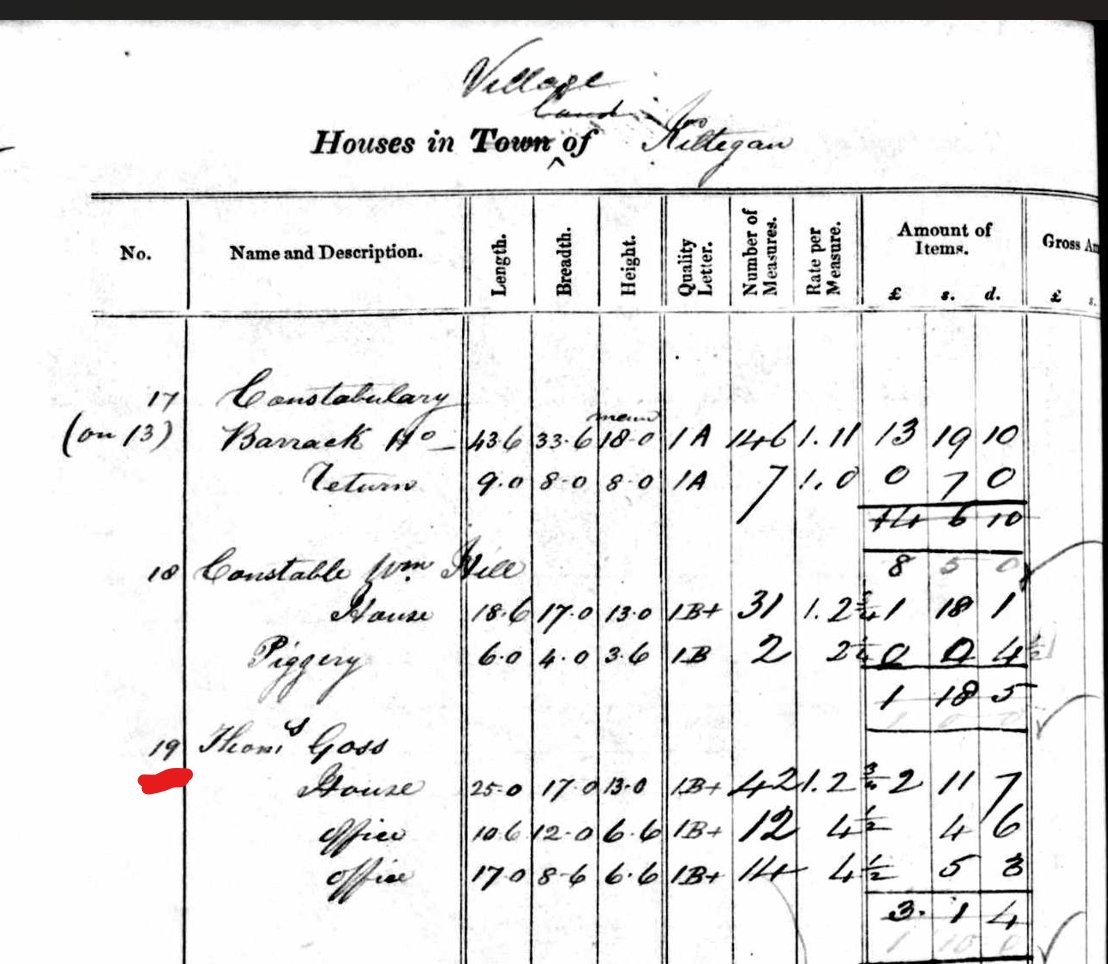 Village
Houses in Town of Kiltegan
No. Name and Description. Length. Breadth. Height. Quality Letter. Number of Measures. Rate per Measure. Amount of Items. Gross Am
£ s. d. £ s.
17 Constabulary
mean
(on 13) Barrack Ho 43.6 33.6 18.0 1A 146 1.11 13 19 10
Return 9.0 8.0 8.0 1A 7 1.0 0 7 0
14 6 10
18 Constable Wm Hill 8 5 0
House 18.6 17.0 13.0 1B+ 31 1.2¾ 1 18 1
Piggery 6.0 4.0 3.6 1B 2 2¼ 0 0 4½
1 18 5
19 Thoms Goss
House 25.0 17.0 13.0 1B+ 42 1.2¾ 2 11 7
office 10.6 12.0 6.6 1B+ 12 4½ 4 6
office 17.0 8.6 6.6 1B+ 14 4½ 5 3
3. 1 4
1 10 0